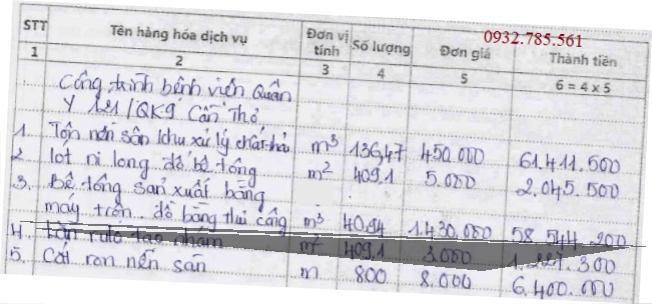 0932.785.561
STT Tên hàng hóa dịch vụ Đơn vị tính Số lượng Đơn giá Thành tiền
1 2 3 4 5 6 = 4 x 5
Công trình bệnh viện Quân
Y 121/QK9 Cần Thơ
1. Tôn nền sân khu xử lý chất thải m³ 136,47 450.000 61.411.500
2 lót ni long đổ bê tông m² 409,1 5.000 2.045.500
3. Bê tông sản xuất bằng
máy trộn. đổ bằng thủ công m³ 40,94 1.430.000 58.544.200
4. tạo nhám m² 409,1 3.000 1.227.300
5. Cắt ron nền sân m 800 8.000 6.400.000